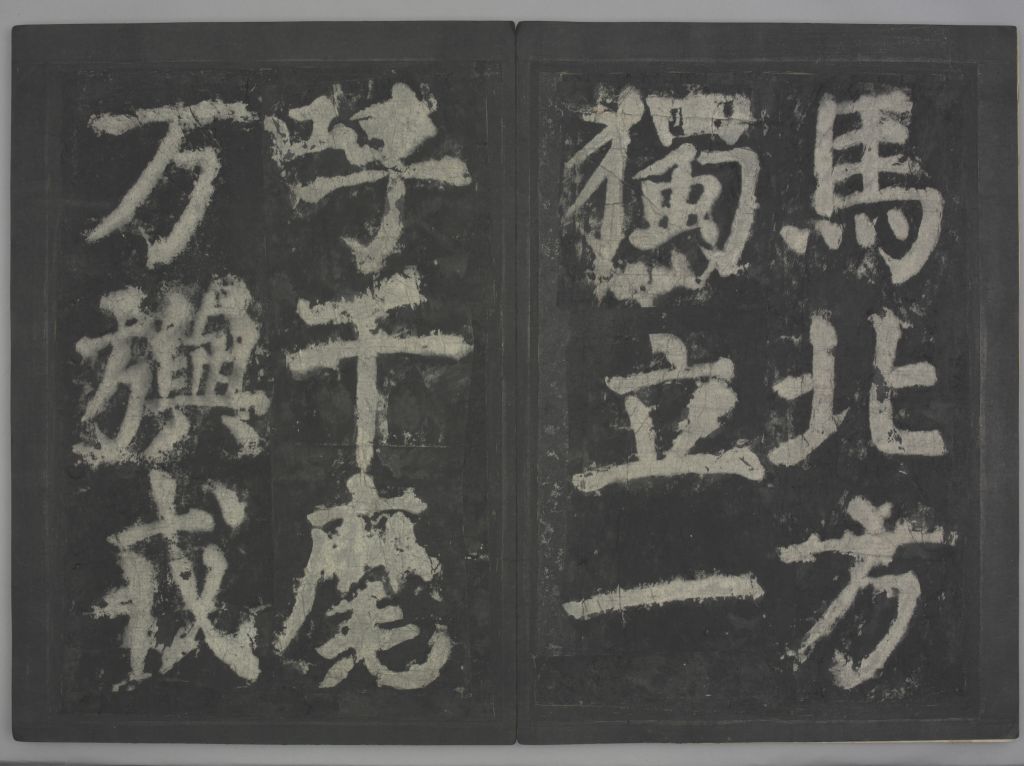 馬北方
獨立一
呼千麾
万旟